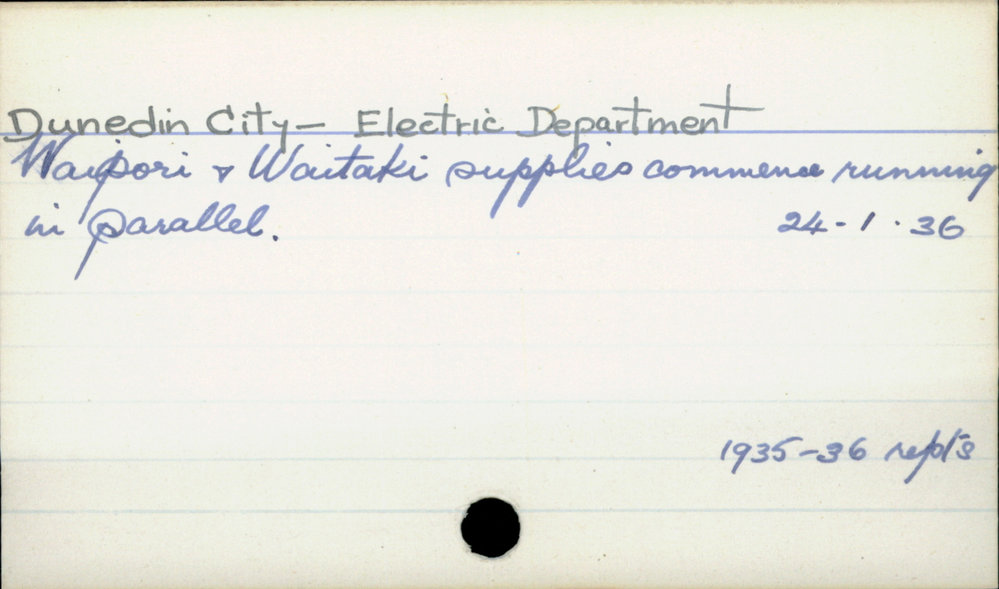 Dunedin City - Electric Department
Waipori & Waitaki supplies commence running
in parallel. 24-1.36
1935-36 rept's